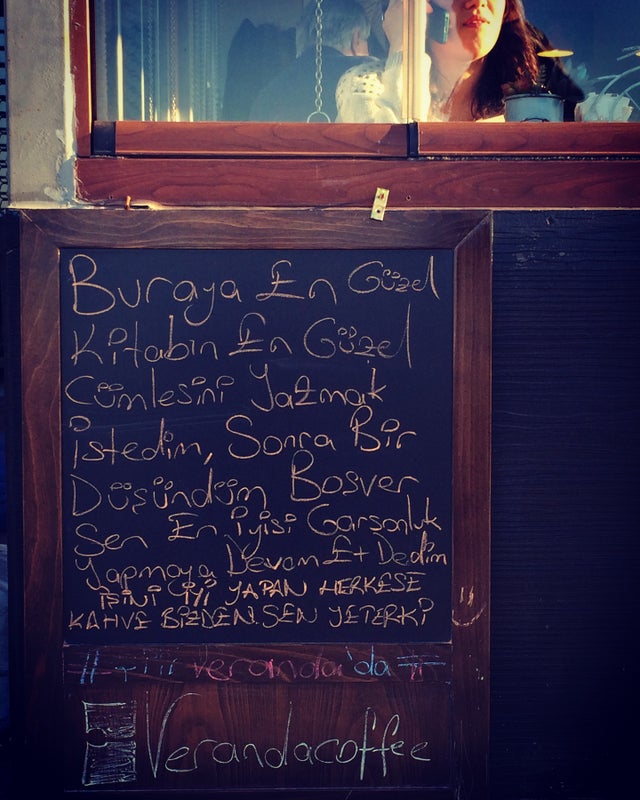 Buraya En Güzel
Kitabın En Güzel
Cümlesini Yazmak
istedim, Sonra Bir
Düşündüm Boşver
Sen En iyisi Garsonluk
Yapmaya Devam Et Dedim
İŞİNİ İYİ YAPAN HERKESE
KAHVE BİZDEN. SEN YETERKİ
veranda'da #
Verandacoffee